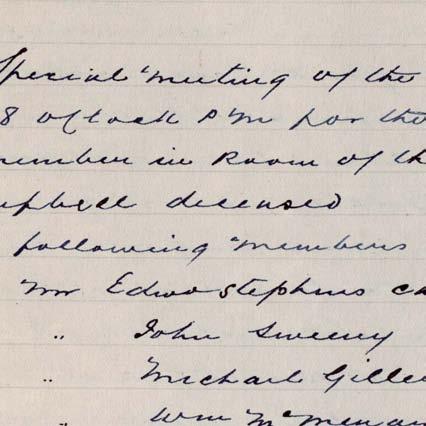 Special meeting of the
8 oclock P M for the
member in Room of th
mpbell deceased
following members
Mr Edwd Stephens ca
" John Sweeny
" Michael Gille
" Wm McMenam